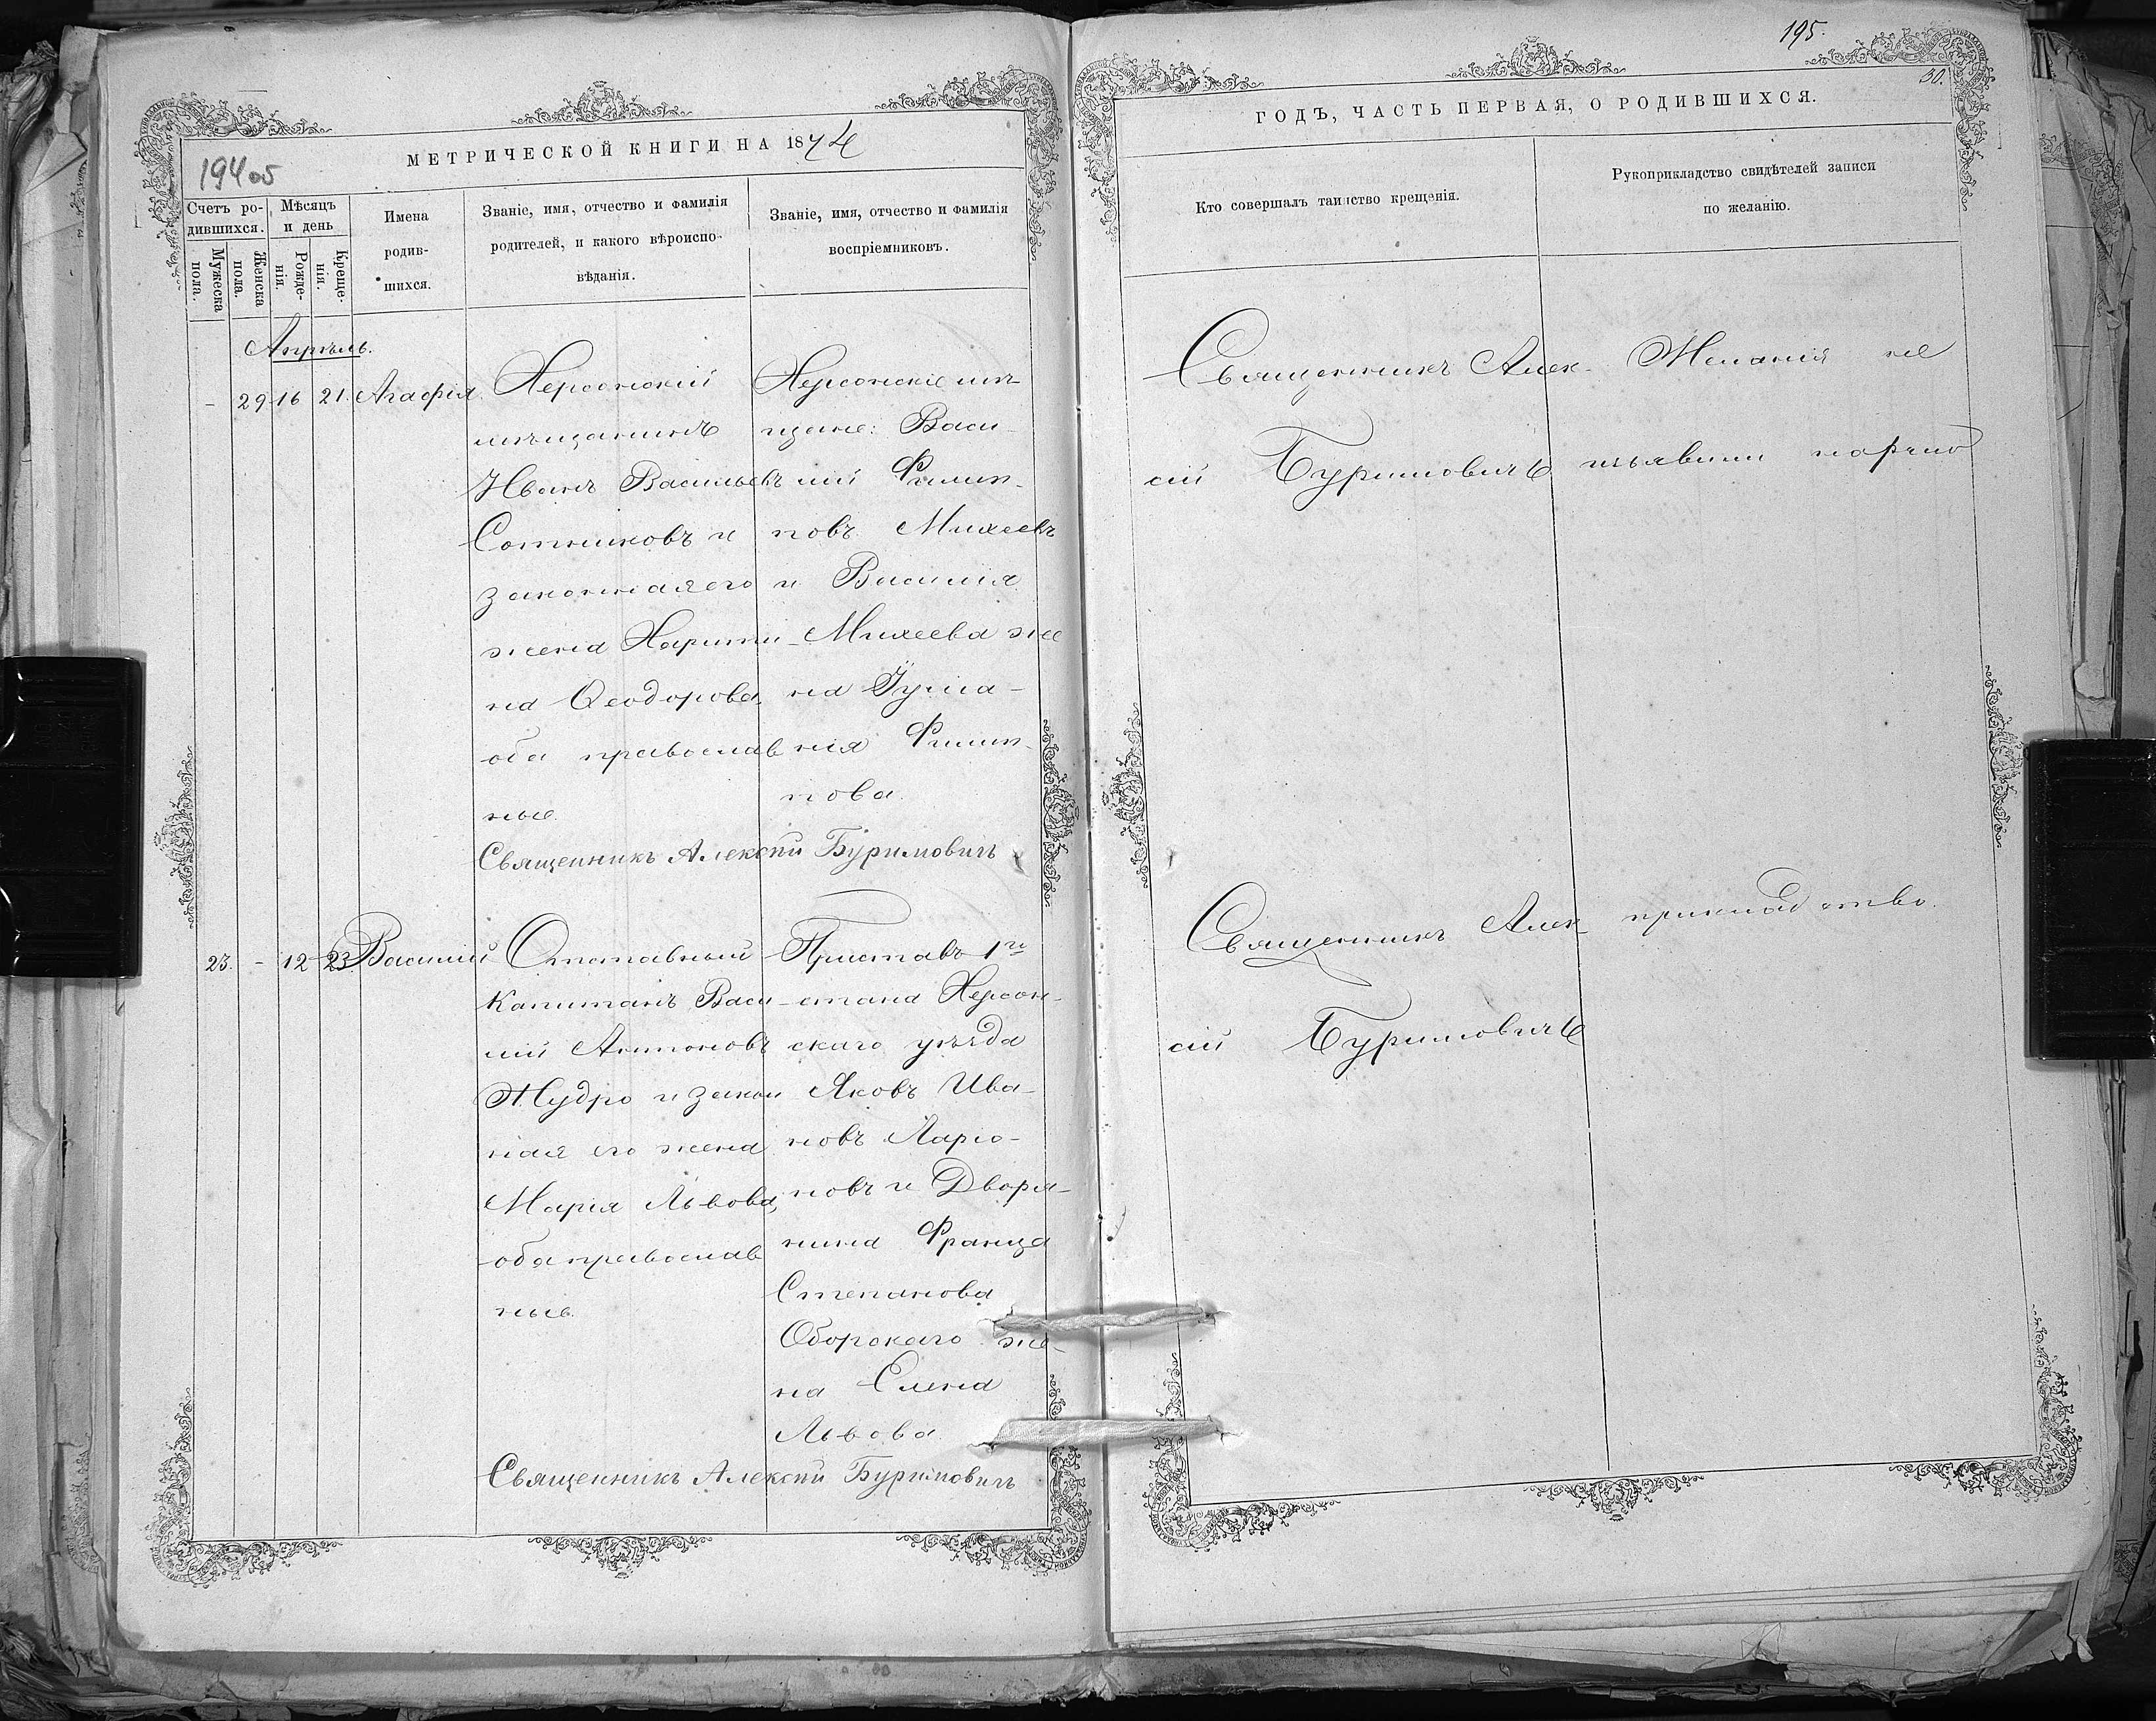 195.
30.
МЕТРИЧЕСКОЙ КНИГИ НА 1874
194 об
Счетъ ро-
дившихся.
Мужеска
пола.
Женска
пола.
Мѣсяцъ
и день
Рожде-
нія.
Креще-
нія.
Имена
родив-
шихся.
Званіе, имя, отчество и фамилія
родителей, и какого вѣроиспо-
вѣданія.
Званіе, имя, отчество и фамилія
воспріемниковъ.
Апрѣль.
- 29 16 21. Агафія.
Херсонскій
мѣщанинъ
Иванъ Васильевъ
Сотниковъ и
законная его
жена Харити-
на Ѳеодорова,
оба православ
ные.
Херсонскіе мѣ-
щане: Васи-
лій Филип-
повъ Михеевъ
и Василія
Михеева же
на Іулiа-
нія Филип-
пова.
Священникъ Алексій Буримовичъ
23. - 12 23. Василій
Отставный
Капитанъ Васи-
лій Антоновъ
Мудро и закон
ная его жена
Марія Львова,
оба православ
ные.
Приставъ 1го
стана Херсон-
скаго уѣзда
Яковъ Ива-
новъ Ларіо-
новъ и Дворя-
нина Франца
Степанова
Оборскаго же-
на Елена
Львова.
Священникъ Алексій Буримовичъ
ГОДЪ, ЧАСТЬ ПЕРВАЯ, О РОДИВШИХСЯ.
Кто совершалъ таинство крещенія.
Рукоприкладство свидѣтелей записи
по желанію.
Священникъ Алек-
сій Буримовичъ
Желанія не
изъявили
Священникъ Алек-
сій Буримовичъ
прикладство.